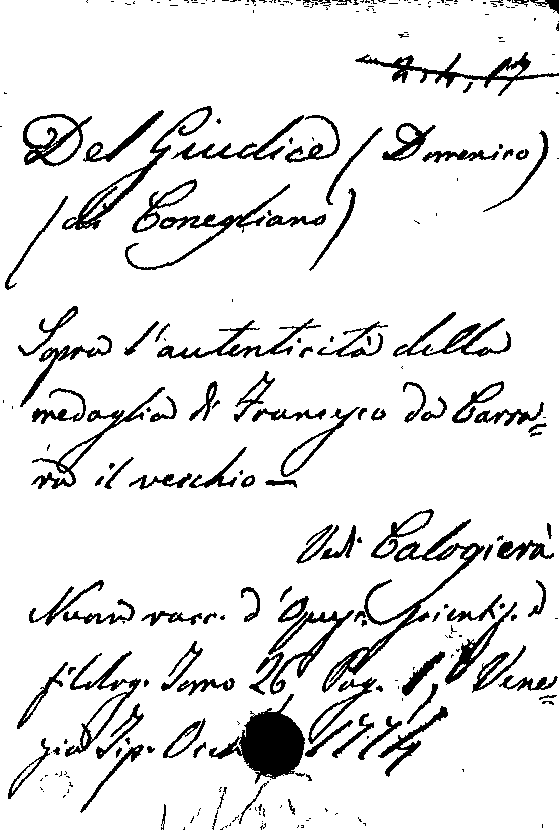 Del Giudice (Domenico)
(di Conegliano)
Sopra l'autenticità della
medaglia di Francesco da Carra=
ra il vecchio —
Vedi Calogierà
Nuova racc. d'Opusc. Scientif. e
filolog. Tomo 26, Pag. 1, Vene=
zia Tip. 1774